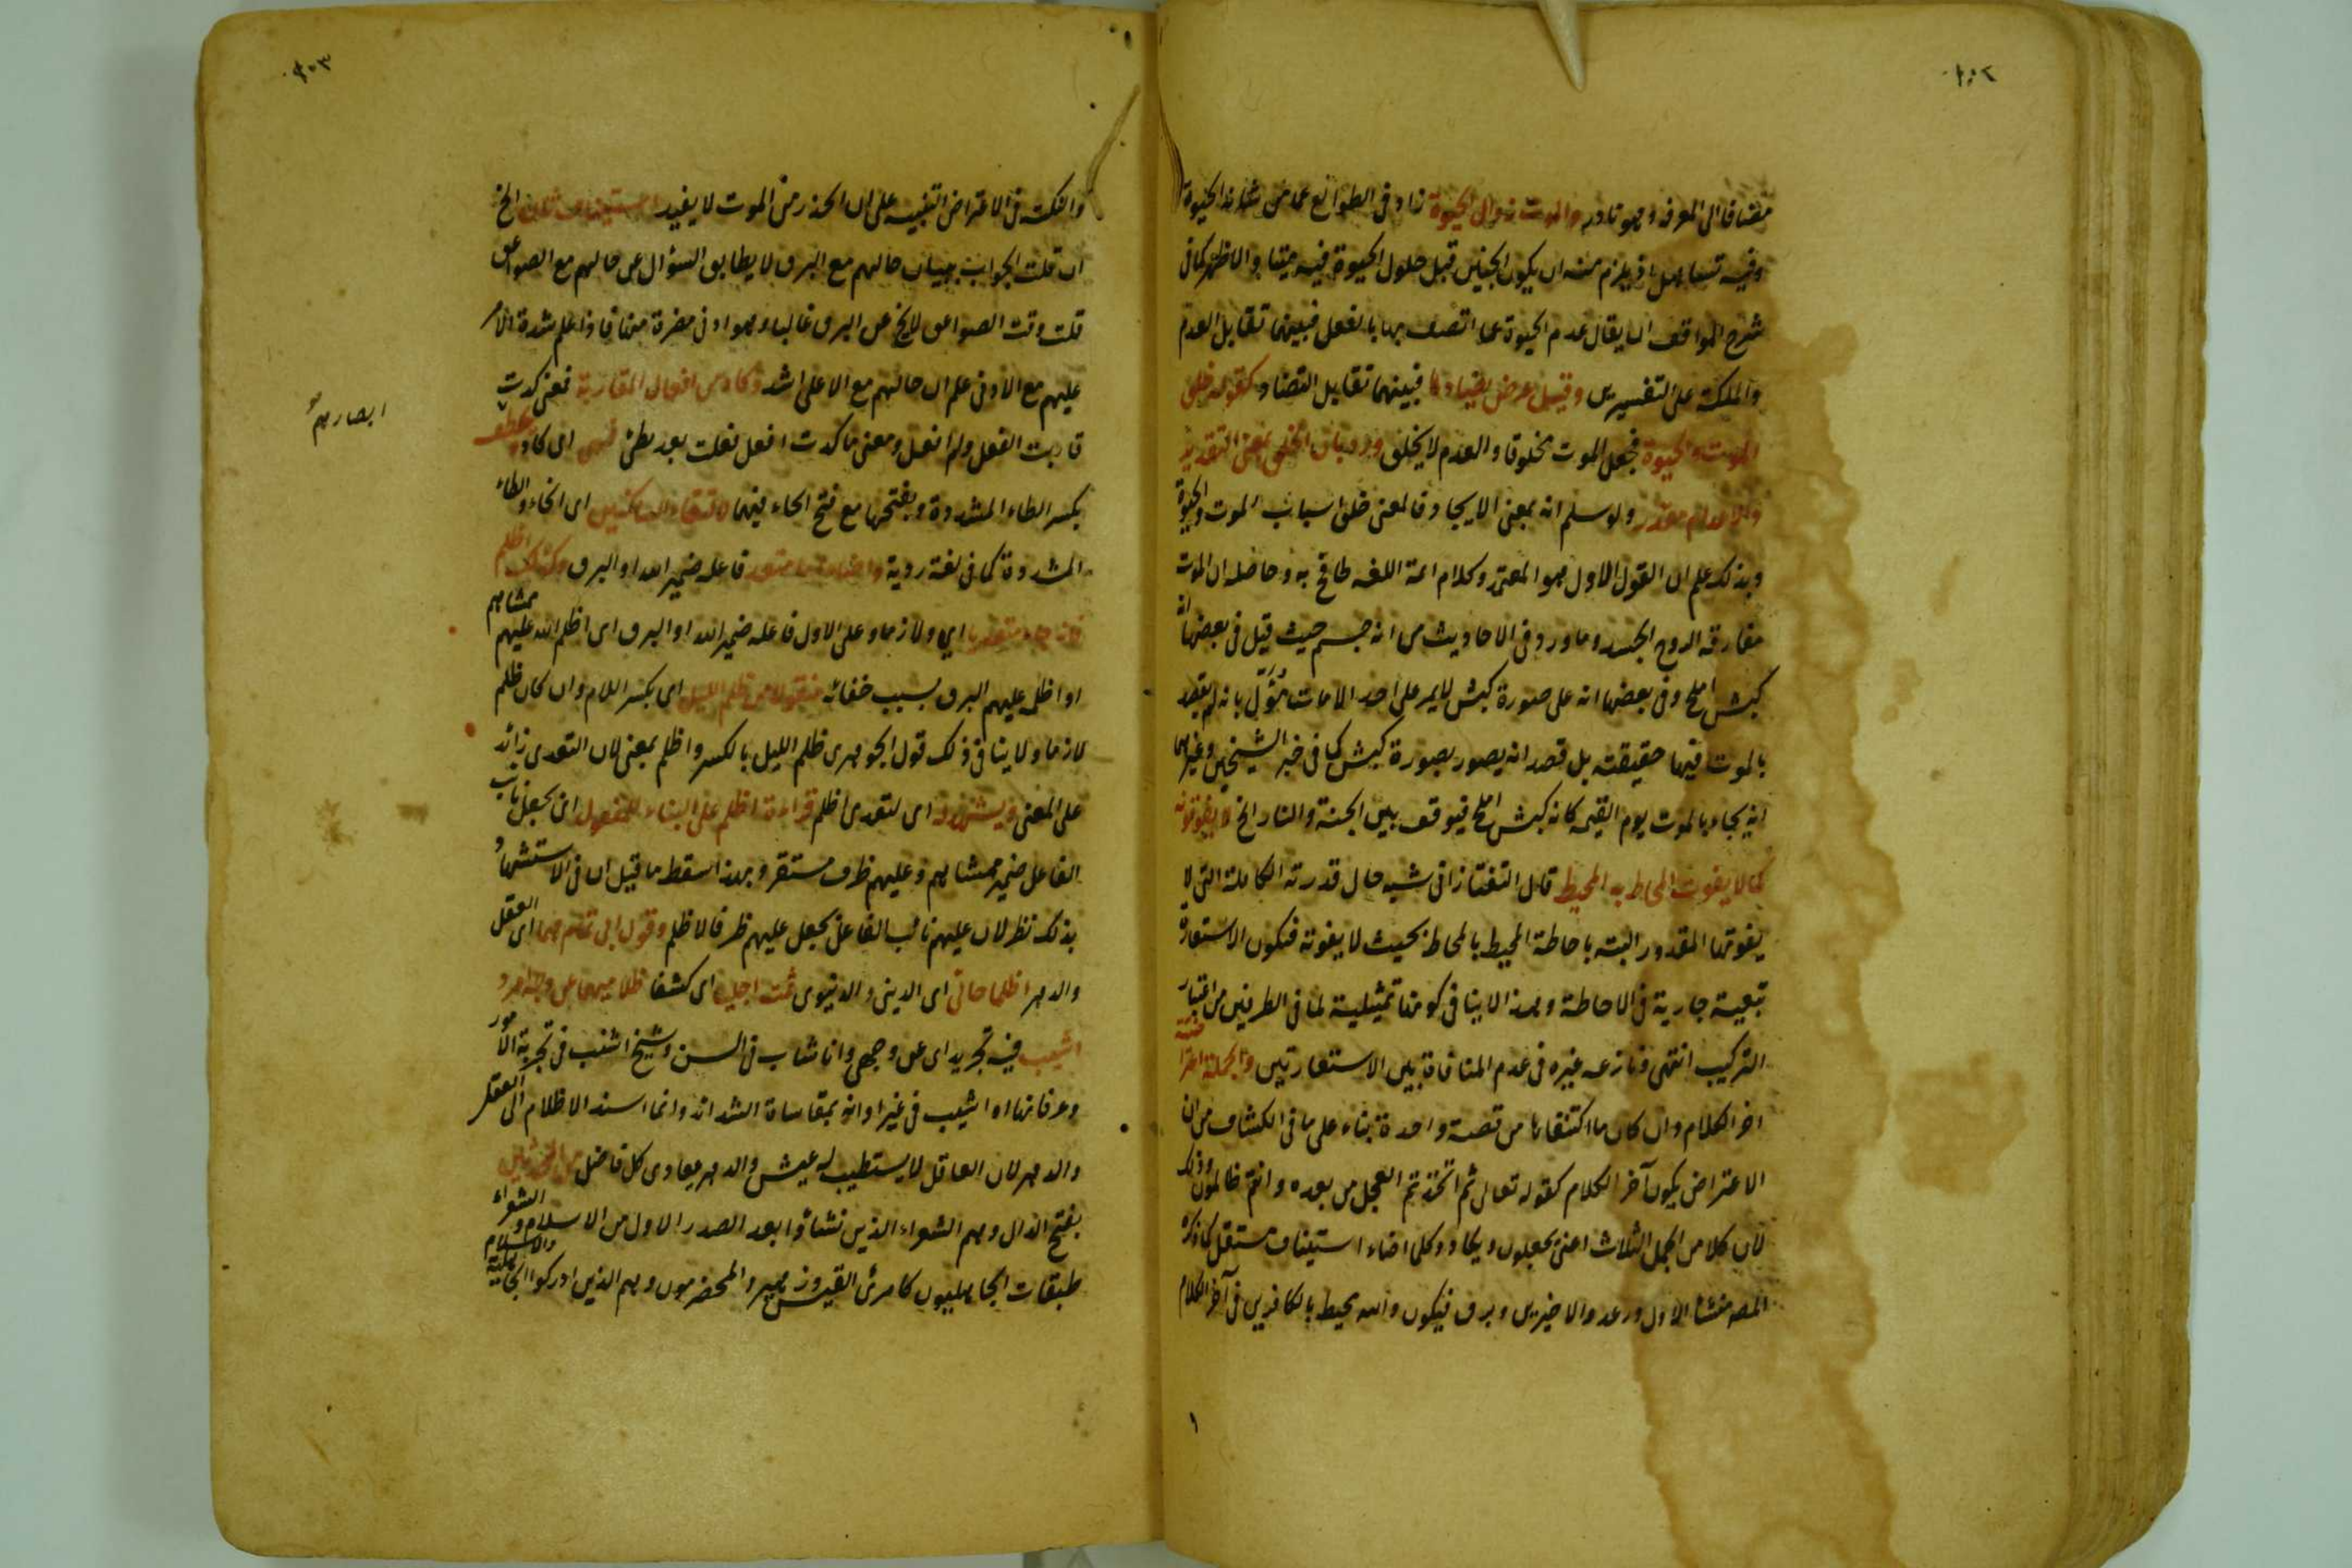 ١٠٢
مضافا الى المعرفة وهو نادر والموت زوال الحيوة زاد فى الطوالع عما من شانه الحيوة
وفيه تساهل اذ يلزم منه ان يكون الجنين قبل حلول الحيوة فيه ميتا والاظهر كما فى
شرح المواقف ان يقال عدم الحيوة عما اتصف بها بالفعل فبينهما تقابل العدم
والملكة على التفسيرين وقيل عرض يضادها فبينهما تقابل التضاد كقوله خلق
الموت والحيوة فجعل الموت مخلوقا والعدم لا يخلق ورد بان الخلق بمعنى التقدير
والاعدام مقدرة ولو سلم انه بمعنى الايجاد فالمعنى خلق اسباب الموت والحيوة
وبذلك علم ان القول الاول هو المعتمد وكلام ائمة اللغة طافح به وحاصله ان الموت
مفارقة الروح الجسد وما ورد فى الاحاديث من انه جسم حيث قيل فى بعضها انه
كبش املح وفى بعضها انه على صورة كبش لا يمر على احد الا مات مؤول بانه لم يقصد
بالموت فيها حقيقته بل قصد انه يصور بصورة كبش كما فى خبر الشيخين وغيرهما
انه يجاء بالموت يوم القيمة كانه كبش املح فيوقف بين الجنة والنار الخ لا يفوتونه
كما لا يفوت المحاط به المحيط قال التفتازانى شبه حال قدرته الكاملة التى لا
يفوتها المقدور البتة باحاطة المحيط بالمحاط بحيث لا يفوته فتكون الاستعارة
تبعية جارية فى الاحاطة وهذا لا ينافى كونها تمثيلية لما فى الطرفين من اعتبار
التركيب انتهى ونازعه غيره فى عدم المنافاة بين الاستعارتين والجملة اعتراضية
اخر الكلام وان كان ما اكتنفاها من قصة واحدة بناء على ما فى الكشاف من ان
الاعتراض يكون آخر الكلام كقوله تعالى ثم اتخذتم العجل من بعده وانتم ظالمون وذلك
لان كلا من الجمل الثلاث اعنى يجعلون ويكاد وكلما اضاء استيناف مستقل كما ذكره
المص منشأ الاول ورعد والاخيرين وبرق فيكون والله محيط بالكافرين فى آخر الكلام
١٠٣
والنكتة فى الاعتراض التنبيه على ان الحذر من الموت لا يفيد استيناف ثان الخ
ان قلت الجواب ببيان حالهم مع البرق لا يطابق السؤال عن حالهم مع الصواعق
قلت وقت الصواعق لا يخ عن البرق غالبا وهو ادنى مضرة منها فاذا علم شدة الامر
عليهم مع الادنى علم ان حالهم مع الاعلى اشد وكاد من افعال المقاربة فمعنى كدت
قاربت الفعل ولم افعل ومعنى ما كدت افعل فعلت بعد بطئ فهى اى كاد يخطف
بكسر الطاء المشددة وبفتحها مع فتح الخاء فيهما لالتقاء الساكنين اى الخاء والطاء
المشددة كما فى لغة ردية واضاء متعد فاعله ضمير الله او البرق وكذلك اظلم
فانه جاء متعديا اي ولازما وعلى الاول فاعله ضمير الله او البرق اى اظلم الله عليهم ممشاهم
او اظلم عليهم البرق بسبب خفائه منقولا من ظلم الليل اى بكسر اللام وان كان ظلم
لازما ولا ينافى ذلك قول الجوهرى ظلم الليل بالكسر واظلم بمعنى لان التعدى زائد
على المعنى ويشهد له اى لتعدى اظلم قراءة اظلم على البناء للمفعول اى بجعل نائب
الفاعل ضمير ممشاهم وعليهم ظرف مستقر وبهذا سقط ما قيل ان فى الاستشهاد
بذلك نظر لان عليهم نائب الفاعل بجعل عليهم ظرفا لاظلم وقول ابى تمام هما اى العقل
والدهر اظلما حالى اى الدينى والدنيوى ثمت اجليا اى كشفا ظلاميهما عن وجه امرد
اشيب فيه تجريد اى عن وجهى وانا شاب فى السن وشيخ اشيب فى تجربة الامور
وعرفانها او اشيب فى غير اوانه بمقاساة الشدائد وانما اسند الاظلام الى العقل
والدهر لان العاقل لا يستطيب له عيش والدهر يعادى كل فاضل من المحدثين
بفتح الدال وهم الشعراء الذين نشأوا بعد الصدر الاول من الاسلام والشعراء
طبقات الجاهليون كامرئ القيس وزهير والمخضرمون وهم الذين ادركوا الجاهلية والاسلام
ابصارهم